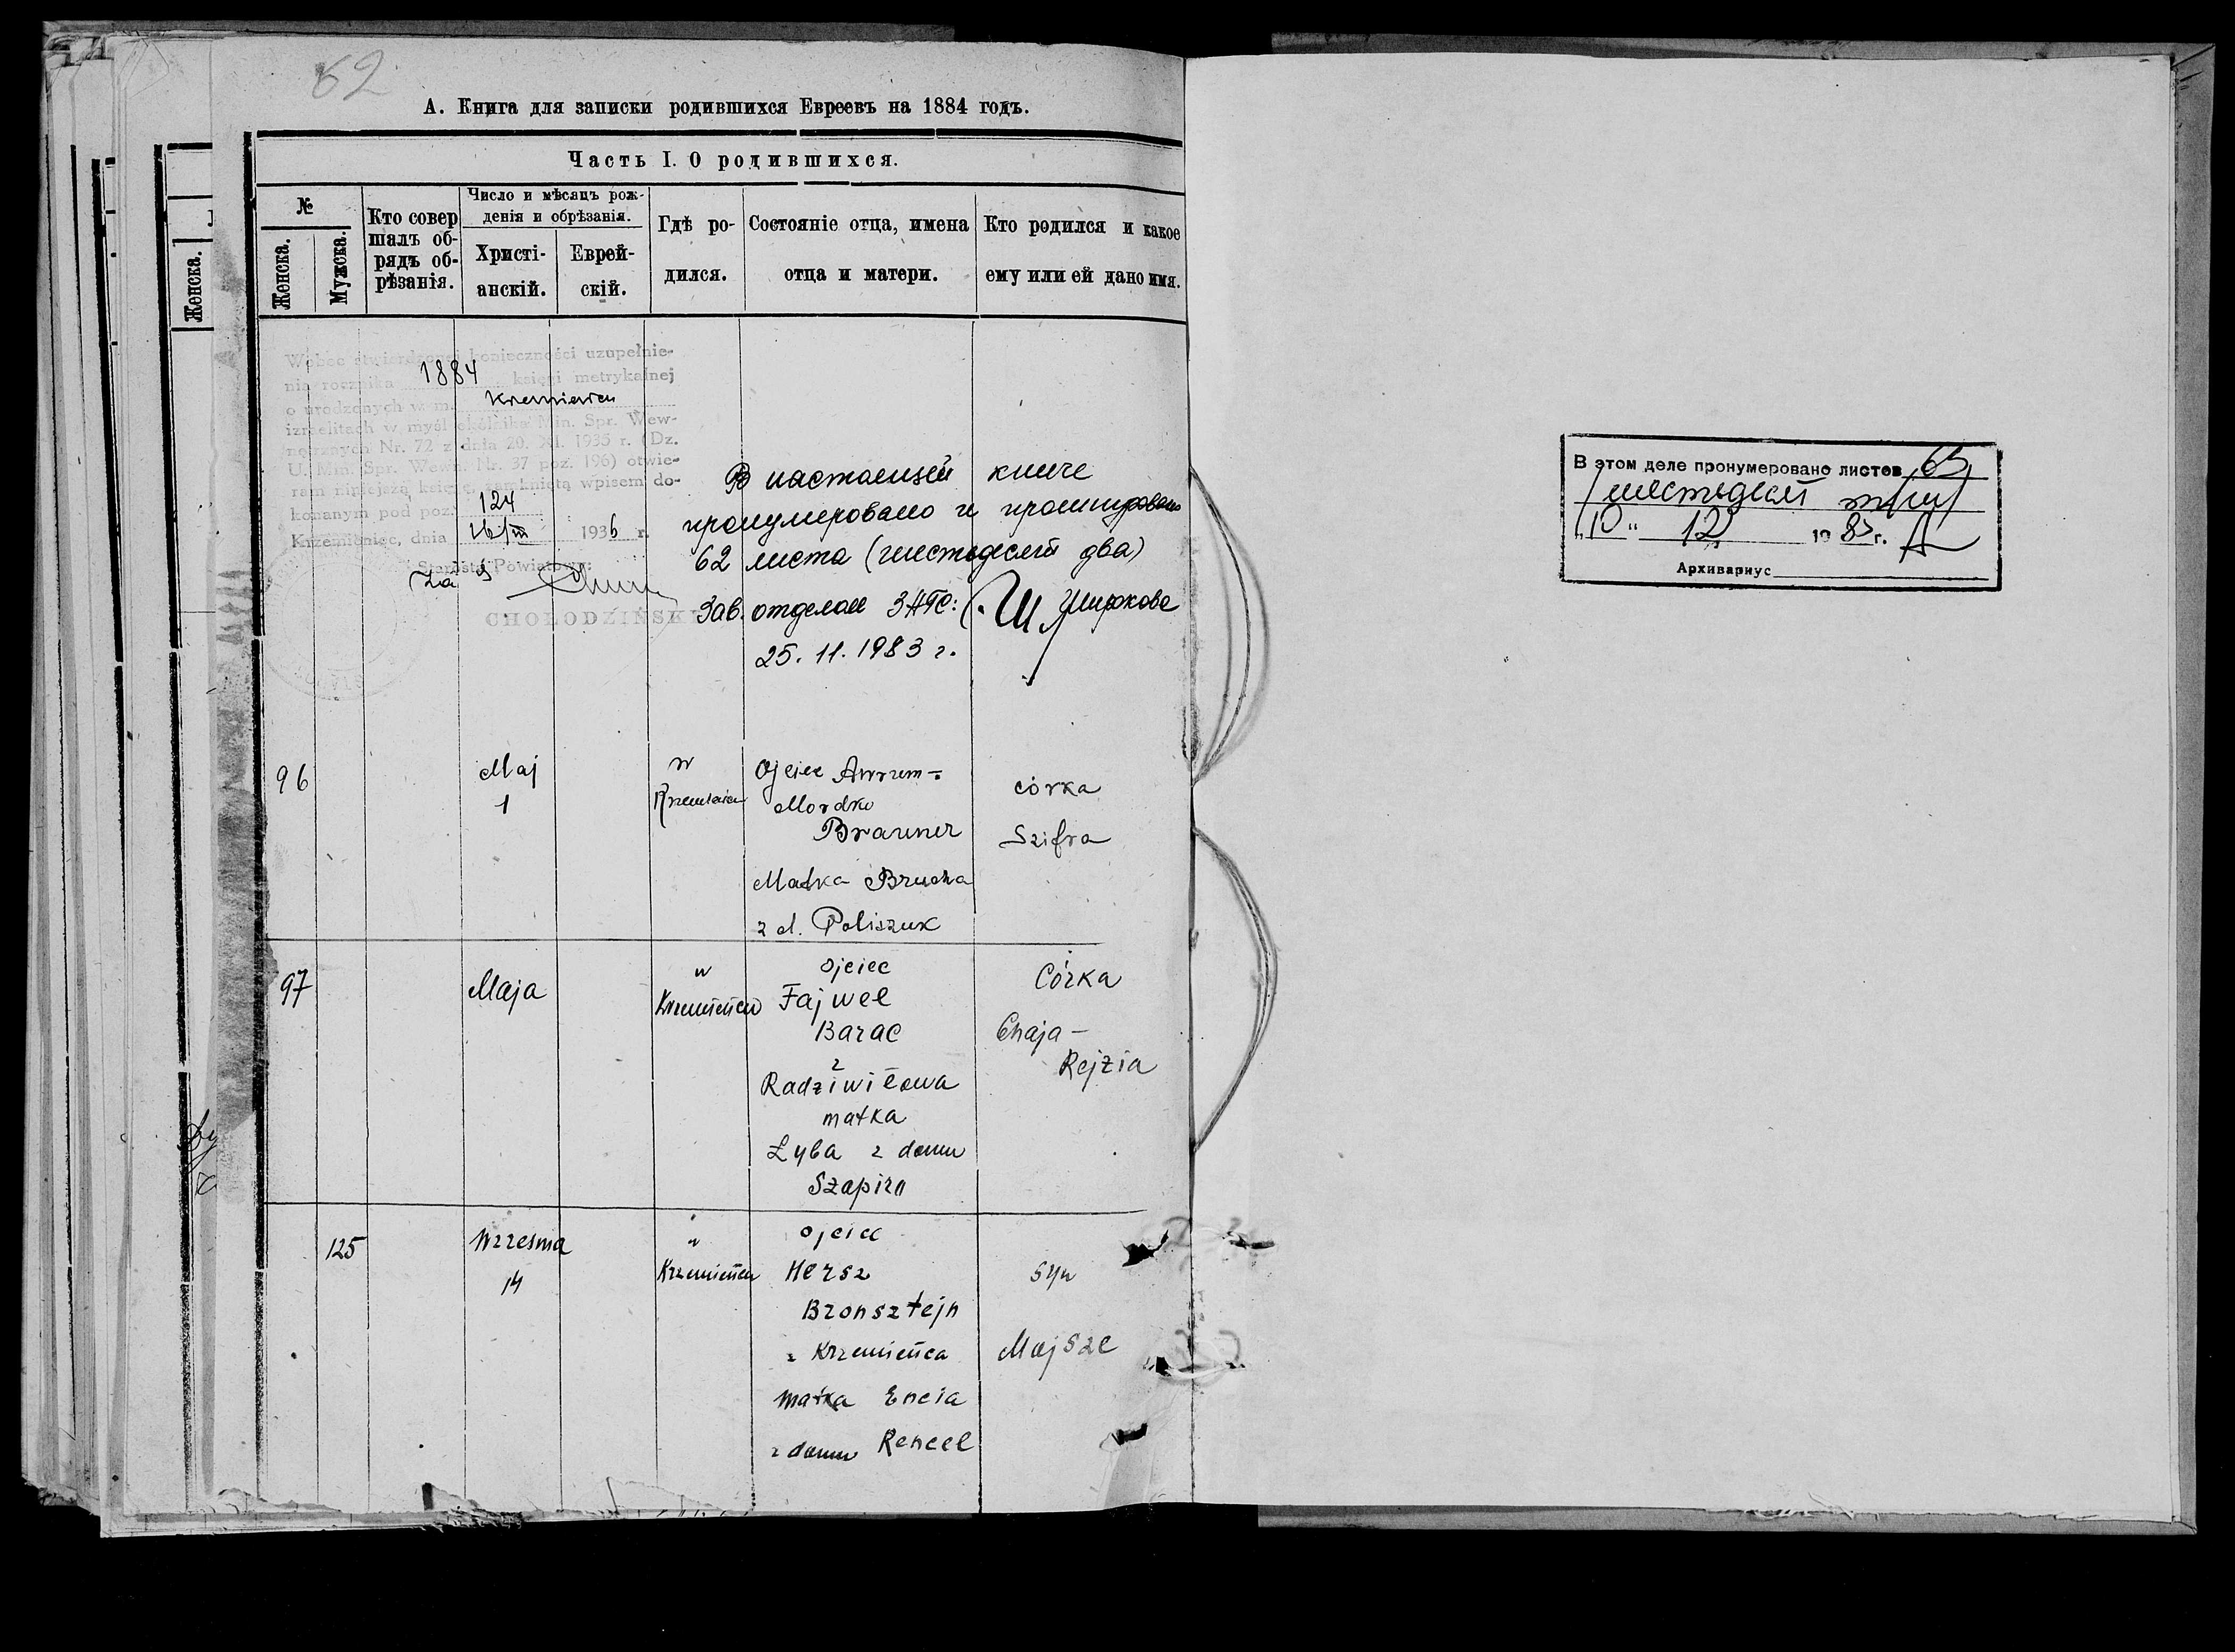 62
А. Книга для записки родившихся Евреевъ на 1884 годъ.
Часть I. О родившихся.
№
Женска.
Мужска.
Кто совер
шалъ об-
рядъ об-
рѣзанія.
Число и мѣсяцъ рож-
денія и обрѣзанія.
Христі-
анскій.
Еврей-
скій.
Гдѣ ро-
дился.
Состояніе отца, имена
отца и матери.
Кто родился и какое
ему или ей дано имя.
Женска.
Wobec stwierdzonej konieczności uzupełnie-
nia rocznika 1884 księgi metrykalnej
o urodzonych w m.
izraelitach w myśl okólnika Min. Spr. Wew-
nętrznych Nr. 72 z dnia 20. XI. 1935 r. (Dz.
U. Min. Spr. Wewn. Nr. 37 poz. 196) otwie-
ram niniejszą księgę, zamkniętą wpisem do-
konanym pod poz. 124
Krzemieniec, dnia 1936 r.
Za Starosta Powiatowy:
CHOŁODZIŃSKI
В настоящей книге
пронумеровано и прошнуровано
62 листа (шестьдесят два)
Зав. отделом ЗАГС:
25. 11. 1983 г.
96
Maj
1
w
Ojciec Awrum-
Mordko
Brauner
Matka Brucha
z d. Poliszuk
córka
Szifra
97
Maja
w
Krzemieńcu
ojciec
Fajwel
Barac
z
Radziwiłowa
matka
Lyba z domu
Szapiro
Córka
Chaja-
Rejzia
125
Wrzesnia
14
w
Krzemieńcu
ojciec
Hersz
Bronsztejn
z Krzemieńca
matka Encia
z domu Rencel
syn
Majsze
В этом деле пронумеровано листов 63
"10" 12 1983 г.
Архивариус